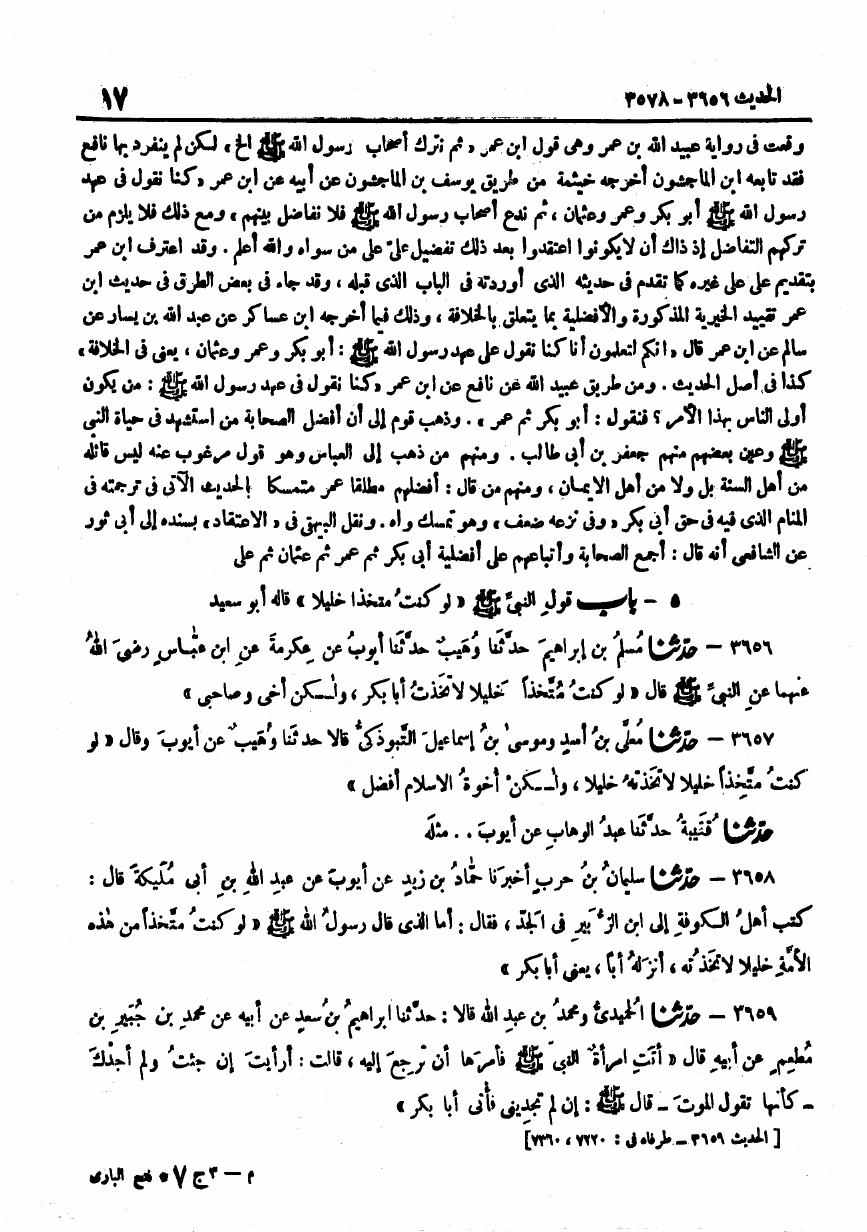 الحديث ٣٦٥٦ - ٣٥٧٨
١٧
وقعت فى رواية عبيد الله بن عمر وهى قول ابن عمر « ثم نترك أصحاب رسول الله ﷺ الخ » لكن لم ينفرد بها نافع
فقد تابعه ابن الماجشون أخرجه خيثمة من طريق يوسف بن الماجشون عن أبيه عن ابن عمر « كنا نقول فى عهد
رسول الله ﷺ أبو بكر وعمر وعثمان ، ثم ندع أصحاب رسول الله ﷺ فلا نفاضل بينهم » ومع ذلك فلا يلزم من
تركهم التفاضل إذ ذاك أن لا يكونوا اعتقدوا بعد ذلك تفضيل علىّ على من سواه والله أعلم . وقد اعترف ابن عمر
بتقديم على على غيره كما تقدم فى حديثه الذى أوردته فى الباب الذى قبله ، وقد جاء فى بعض الطرق فى حديث ابن
عمر تقييد الخيرية المذكورة والأفضلية بما يتعلق بالخلافة ، وذلك فيما أخرجه ابن عساكر عن عبد الله بن يسار عن
سالم عن ابن عمر قال « انكم لتعلمون أنا كنا نقول على عهد رسول الله ﷺ : أبو بكر وعمر وعثمان ، يعنى فى الخلافة »
كذا فى أصل الحديث . ومن طريق عبيد الله عن نافع عن ابن عمر « كنا نقول فى عهد رسول الله ﷺ : من يكون
أولى الناس بهذا الأمر ؟ فنقول : أبو بكر ثم عمر » . وذهب قوم إلى أن أفضل الصحابة من استشهد فى حياة النبى
ﷺ وعين بعضهم منهم جعفر بن أبى طالب . ومنهم من ذهب إلى العباس وهو قول مرغوب عنه ليس قائله
من أهل السنة بل ولا من أهل الايمان ، ومنهم من قال : أفضلهم مطلقا عمر متمسكا بالحديث الآتى فى ترجمته فى
المنام الذى فيه فى حق أبى بكر « وفى نزعه ضعف » وهو تمسك واه . ونقل البيهقى فى « الاعتقاد » بسنده إلى أبى ثور
عن الشافعى أنه قال : أجمع الصحابة وأتباعهم على أفضلية أبى بكر ثم عمر ثم عثمان ثم على
٥ - باب قولِ النبىِّ ﷺ « لو كنتُ متخذا خليلا » قاله أبو سعيد
٣٦٥٦ - حدّثنا مُسلمُ بن إبراهيمَ حدَّثَنا وُهَيبٌ حدَّثَنا أيوبُ عن عِكرمةَ عنِ ابن عبّاسٍ رضىَ اللهُ
عنهما عنِ النبىِّ ﷺ قال « لو كنتُ مُتَّخذاً خليلا لاتخَذتُ أبا بكر ، ولـكن أخى وصاحبى »
٣٦٥٧ - حدّثنا مُعلَّى بنُ أسدٍ وموسىٰ بنُ إسماعيلَ التَّبوذكىُّ قالا حدثنا وُهَيبٌ عن أيوبَ وقال « لو
كنتُ متَّخِذاً خليلا لاتخَذتهُ خليلا ، ولـكنْ أخوةُ الاسلام أفضل »
حدّثنا قُتَيبةُ حدثَنا عبدُ الوهابِ عن أيوبَ . . مثلَه
٣٦٥٨ - حدّثنا سليمانُ بنُ حربٍ أخبرَنا حمّادُ بن زيدٍ عن أيوبَ عن عبدِ اللهِ بنِ أبى مُلَيكةَ قال :
كتب أهلُ الـكوفةِ إلى ابن الزُّبَيرِ فى الجَدّ ، فقال : أما الذى قال رسولُ الله ﷺ « لو كنتُ متَّخذاً من هٰذه
الأمَّةِ خليلا لاتخَذتُه ، أنزلَهُ أباً ، يعنى أبا بكر »
٣٦٥٩ - حدّثنا الحُميدىُّ ومحمدُ بن عبدِ الله قالا : حدَّثنا ابراهيمُ بنُ سعدٍ عن أبيه عن محمدِ بن جُبَيرِ بن
مُطعِمٍ عن أبيهِ قال « أتَتِ امرأةٌ النبىَّ ﷺ فأمرَها أن تَرجِعَ إليه ، قالت : أرأيتَ إن جئتُ ولم أجدْكَ
ـ كأنها تقول الموتَ ـ قال ﷺ : إن لم تَجدينى فأتى أبا بكر »
[ الحديث ٣٦٥٩ ـ طرفاه فى : ٧٢٢٠ ، ٧٣٦٠ ]
م — ٣ ج ٧ * فتح البارى